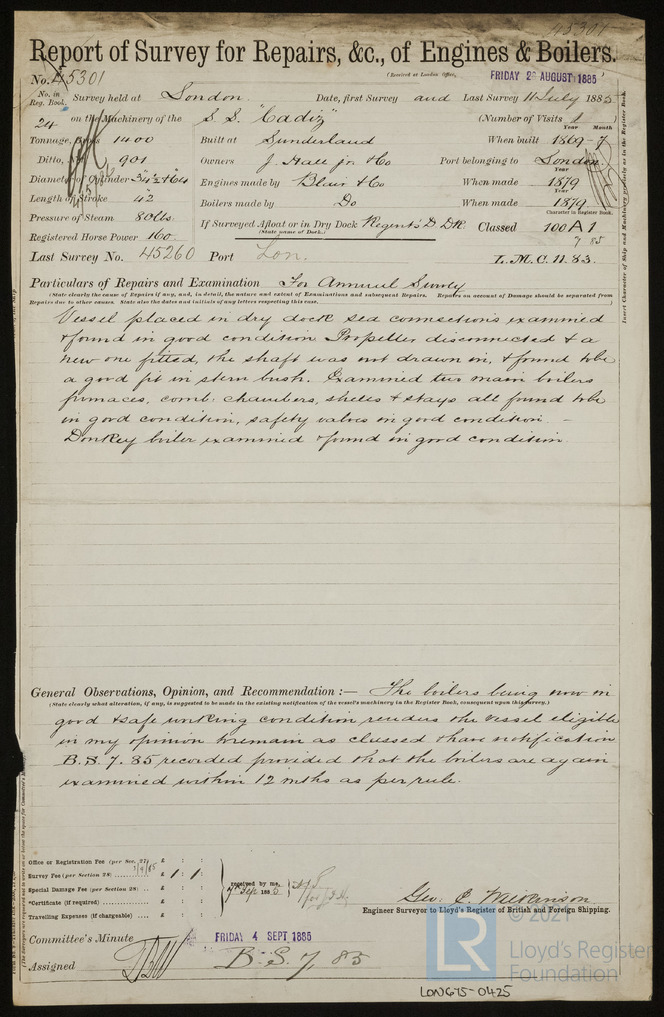 45301
Report of Survey for Repairs, &c., of Engines & Boilers.
No. 45301 (Received at London Office, FRIDAY 28 AUGUST 1885)
No. in Reg. Book. Survey held at London. Date, first Survey and Last Survey 11 July 1885
24 on the Machinery of the S.S. "Cadiz" (Number of Visits 1)
Tonnage, Gross 1400 Built at Sunderland When built Year 1869 Month 7
Ditto, 901 Owners J. Hall jr. & Co Port belonging to London
Diameter of Cylinder 34½ & 64 Engines made by Blair & Co When made Year 1879
Length of Stroke 42 Boilers made by Do When made Year 1879
Pressure of Steam 80 lbs If Surveyed Afloat or in Dry Dock Regents D. DK. Classed Character in Register Book. 100 A 1
(State name of Dock.) 7 85
Registered Horse Power 160.
Last Survey No. 45260 Port Lon. L.M.C. 11.83.
Insert Character of Ship and Machinery precisely as in the Register Book.
Particulars of Repairs and Examination For Annual Survey
(State clearly the cause of Repairs if any, and, in detail, the nature and extent of Examinations and subsequent Repairs. Repairs on account of Damage should be separated from
Repairs due to other causes. State also the dates and initials of any letters respecting this case.)
Vessel placed in dry dock sea connections examined
& found in good condition Propeller disconnected & a
new one fitted, the shaft was not drawn in, & found to be
a good fit in stern bush. Examined two main boilers
furnaces, comb: chambers, shells & stays all found to be
in good condition, safety valves in good condition. –
Donkey boiler examined & found in good condition.
General Observations, Opinion, and Recommendation :— The boilers being now in
(State clearly what alteration, if any, is suggested to be made in the existing notification of the vessel's machinery in the Register Book, consequent upon this survey.)
good & safe working condition renders the vessel eligible
in my opinion to remain as classed & have notification
B.S. 7. 85 recorded provided that the boilers are again
examined within 12 mths as per rule.
Office or Registration Fee (per Sec. 27) £ : :
Survey Fee (per Section 28) £ 1 : 1 :
Special Damage Fee (per Section 28) £ : :
*Certificate (if required) £ : :
Travelling Expenses (if chargeable) £ : :
received by me,
7th Sep 1885
Geo. C.
Engineer Surveyor to Lloyd's Register of British and Foreign Shipping.
Committee's Minute FRIDAY 4 SEPT 1885
Assigned B.S. 7, 85
LR
© 2021
Lloyd's Register
Foundation
LON675-0425